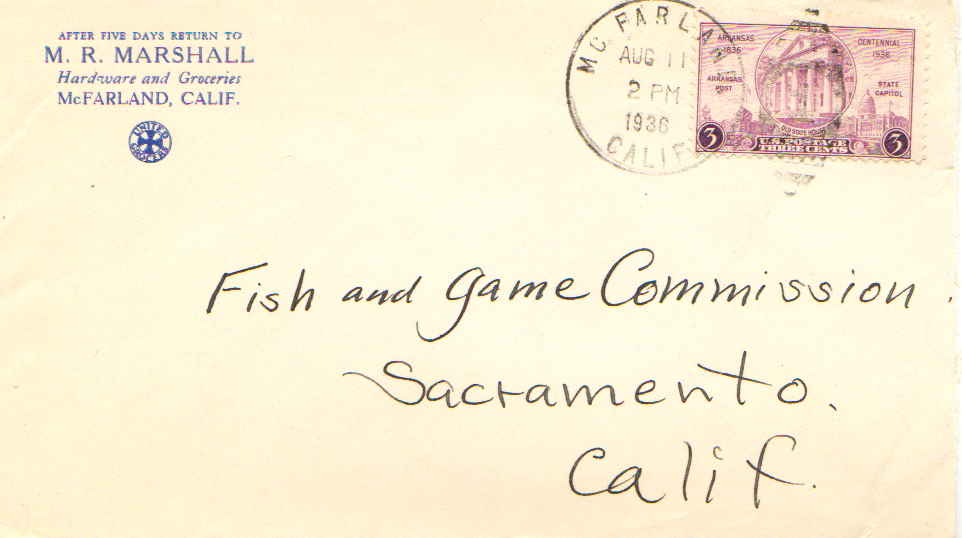 AFTER FIVE DAYS RETURN TO
M. R. MARSHALL
Hardware and Groceries
McFARLAND, CALIF.
UNITED
GROCERS
MC FARLAND
AUG 11
2 PM
1936
CALIF.
ARKANSAS
1836
CENTENNIAL
1936
ARKANSAS
POST
STATE
CAPITOL
OLD STATE HOUSE
3
U.S. POSTAGE
THREE CENTS
3
Fish and Game Commission.
Sacramento.
Calif.